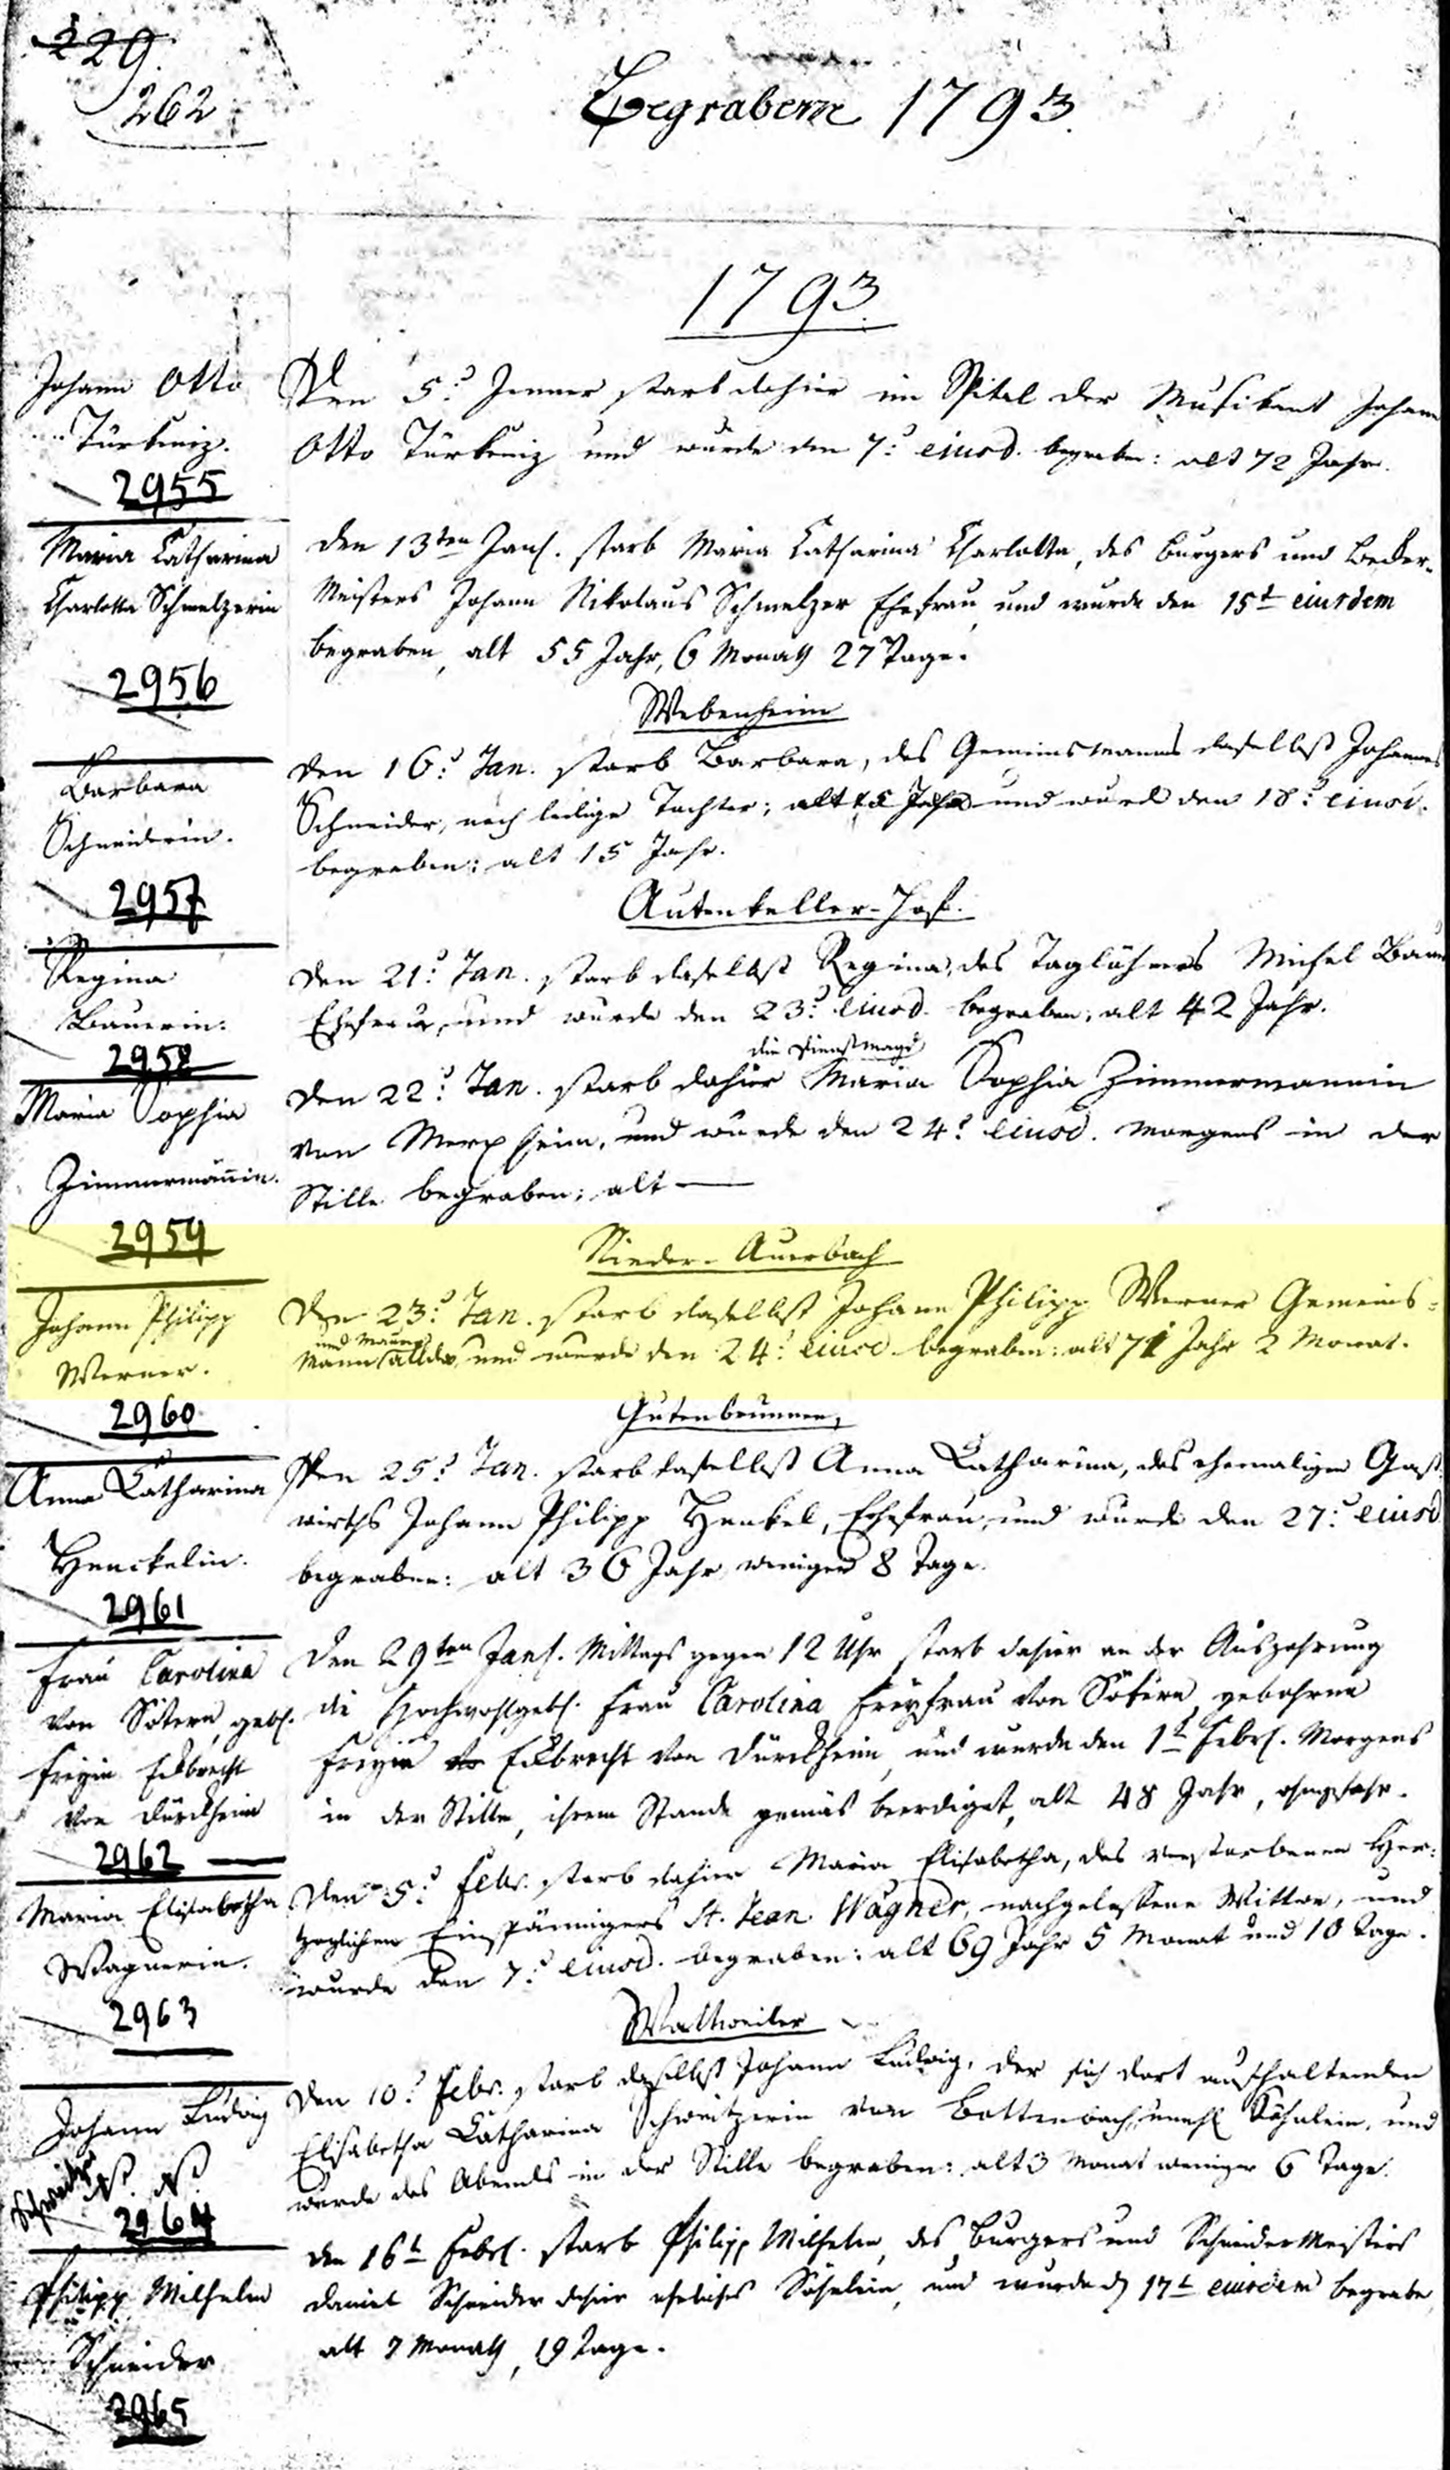 229.
262
Begrabene 1793.
1793.
Johann Otto
Türkeniz.
2955
Den 5.ᵗ Jenner starb dahier im Spital der Musikant Johann
Otto Türkeniz und wurde den 7.ᵗ eiusd. begraben: alt 72 Jahr.
Maria Catharina
Charlotta Schmelzerin
2956
den 13ten Jan. starb Maria Catharina Charlotta, des burgers und Becker-
Meisters Johann Nikolaus Schmelzer Ehefrau und wurde den 15t eiusdem
begraben, alt 55 Jahr, 6 Monath 27 Tage.
Webenheim
Barbara
Schneiderin.
2957
Den 16.ᵗ Jan. starb Barbara, des Gemeinsmanns daselbst Johannes
Schneider, noch ledige Tochter; alt 15 Jahr und wurde den 18.ᵗ eiusd.
begraben: alt 15 Jahr.
Autenkeller-Hof.
Regina
Bauerin.
2958
Den 21.ᵗ Jan. starb daselbst Regina, des Taglöhners Michel Bauer
Ehefrau, und wurde den 23.ᵗ eiusd. begraben, alt 42 Jahr.
Maria Sophia
Zimmermännin.
2959
die Dienstmagd
Den 22.ᵗ Jan. starb dahier Maria Sophia Zimmermannin
von Merxheim, und wurde den 24.ᵗ eiusd. morgens in der
Stille begraben; alt —
Nieder-Auerbach
Johann Philipp
Werner.
2960
Den 23.ᵗ Jan. starb daselbst Johann Philipp Werner Gemeins-
und
Mann allda, und wurde den 24.ᵗ eiusd. begraben: alt 71 Jahr 2 Monat.
Gutenbrunnen,
Anna Catharina
Henckelin.
2961
Den 25.ᵗ Jan. starb daselbst Anna Catharina, des ehemaligen Gast-
wirths Johann Philipp Henkel, Ehefrau, und wurde den 27.ᵗ eiusd.
begraben: alt 36 Jahr, weniger 8 Tage.
Frau Carolina
von Sötern, geb.
freyin Eckbrecht
von Dürckheim
2962
Den 29ten Jan. Mittags gegen 12 Uhr starb dahier an der Auszehrung
die Hochwohlgeb. Frau Carolina Freyfrau von Sötern, gebohrne
Freyin Eckbrecht von Dürckheim, und wurde den 1t Febr. Morgens
in der Stille, ihrem Stande gemäs beerdiget, alt 48 Jahr, ohngefehr.
Maria Elisabetha
Wagnerin.
2963
Den 5.ᵗ Febr. starb dahier Maria Elisabetha, des verstorbenen Her-
zoglichen Einspännigers St. Jean Wagner, nachgelassene Wittwe, und
wurde den 7.ᵗ eiusd. begraben: alt 69 Jahr 5 Monat und 10 Tage.
Wattweiler
Johann Ludwig
N. N.
Schweitzer
2964
Den 10.ᵗ Febr. starb daselbst Johann Ludwig, der sich dort aufhaltenden
Elisabetha Catharina Schweitzerin von Bottenbach, unehl. Söhnlein, und
wurde des Abends in der Stille begraben: alt 3 Monat weniger 6 Tage.
Philipp Wilhelm
Schneider
2965
den 16t Febr. starb Philipp Wilhelm, des Burgers und Schneider Meisters
Daniel Schneider dahier eheliches Söhnlein, und wurde d. 17t eiusdem begraben,
alt 7 Monath, 19 Tage.